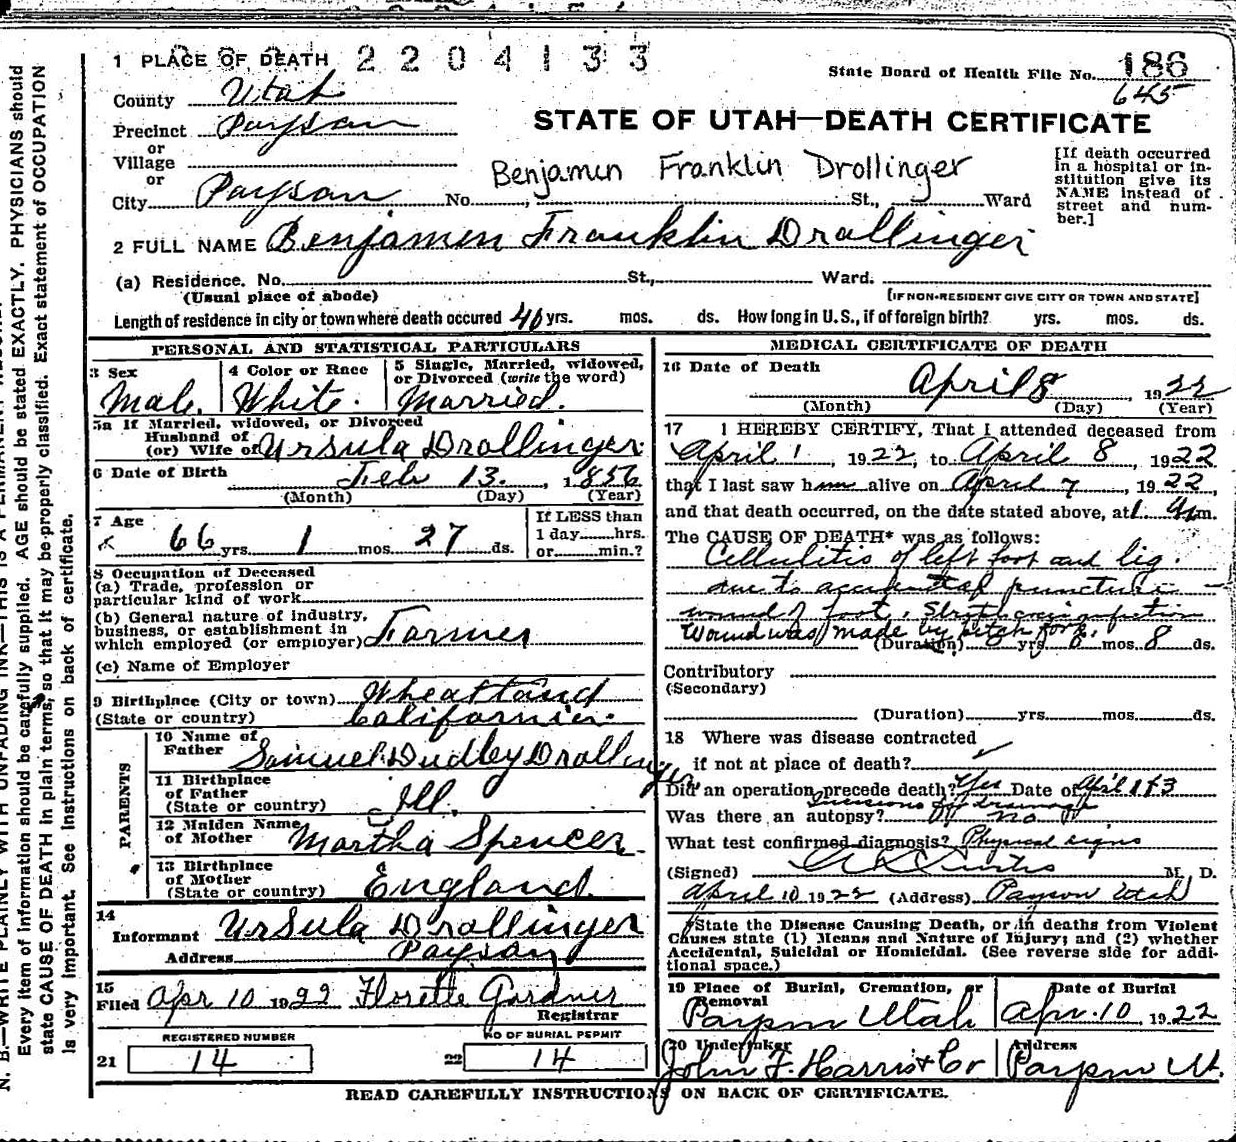 1 PLACE OF DEATH 2 2 0 4 1 3 3
State Board of Health File No. 186
645
County Utah
Precinct Payson
or
Village
or
City Payson No. , St., Ward
STATE OF UTAH—DEATH CERTIFICATE
Benjamin Franklin Drollinger
[If death occurred
in a hospital or in-
stitution give its
NAME instead of
street and num-
ber.]
2 FULL NAME Benjamin Franklin Drallinger
(a) Residence. No. St., Ward.
(Usual place of abode)
[IF NON-RESIDENT GIVE CITY OR TOWN AND STATE]
Length of residence in city or town where death occured 40 yrs. mos. ds. How long in U. S., if of foreign birth? yrs. mos. ds.
PERSONAL AND STATISTICAL PARTICULARS
3 Sex
Male.
4 Color or Race
White.
5 Single, Married, widowed,
or Divorced (write the word)
Married.
5a If Married, widowed, or Divorced
Husband of
(or) Wife of Ursula Drollinger
6 Date of Birth Feb 13. , 1856
(Month) (Day) (Year)
7 Age
66 yrs. 1 mos. 27 ds.
If LESS than
1 day hrs.
or min.?
8 Occupation of Deceased
(a) Trade, profession or
particular kind of work
(b) General nature of industry,
business, or establishment in
which employed (or employer) Farmer
(c) Name of Employer
9 Birthplace (City or town) Wheatland
(State or country) California.
PARENTS
10 Name of
Father Samuel Dudley Drallinger
11 Birthplace
of Father
(State or country) Ill.
12 Maiden Name
of Mother Martha Spencer.
13 Birthplace
of Mother
(State or country) England.
14
Informant Ursula Drallinger
Address Payson
15
Filed Apr 10 1922 Florette Gardner
Registrar
REGISTERED NUMBER
21 14
NO OF BURIAL PERMIT
22 14
MEDICAL CERTIFICATE OF DEATH
16 Date of Death
April 8 , 1922
(Month) (Day) (Year)
17 I HEREBY CERTIFY, That I attended deceased from
April 1 , 1922, to April 8 , 1922
that I last saw him alive on April 7 , 1922,
and that death occurred, on the date stated above, at m.
The CAUSE OF DEATH* was as follows:
Cellulitis of left foot and lig.
due to accidental puncture
wound of foot.
Wound was made by pitch fork.
(Duration) 0 yrs. 0 mos. 8 ds.
Contributory
(Secondary)
(Duration) yrs. mos. ds.
18 Where was disease contracted
if not at place of death?
Did an operation precede death? Yes Date of April 1 & 3
Incisions for drainage
Was there an autopsy? no
What test confirmed diagnosis? Physical signs
(Signed) Curtis M. D.
April 10 1922 (Address) Payson Utah
*State the Disease Causing Death, or in deaths from Violent
Causes state (1) Means and Nature of Injury; and (2) whether
Accidental, Suicidal or Homicidal. (See reverse side for addi-
tional space.)
19 Place of Burial, Cremation, or
Removal
Payson Utah
Date of Burial
Apr. 10, 1922
20 Undertaker
John F. Harris & Co
Address
Payson Ut.
READ CAREFULLY INSTRUCTIONS ON BACK OF CERTIFICATE.
N. B.—WRITE PLAINLY WITH UNFADING INK—THIS IS A PERMANENT
Every item of information should be carefully supplied. AGE should be stated EXACTLY. PHYSICIANS should
state CAUSE OF DEATH in plain terms, so that it may be properly classified. Exact statement of OCCUPATION
is very important. See instructions on back of certificate.